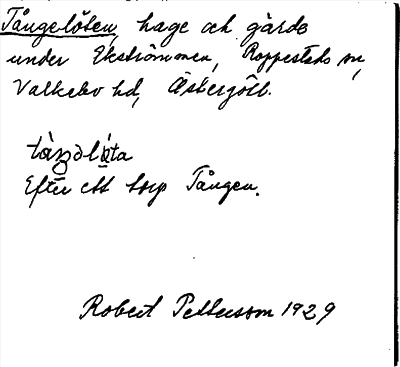 Tångelöten, hage och gärde
under Ekströmmen, Rappestads sn,
Valkebo hd, Östergötl.
Efter ett torp Tången.
Robert Pettersson 1929